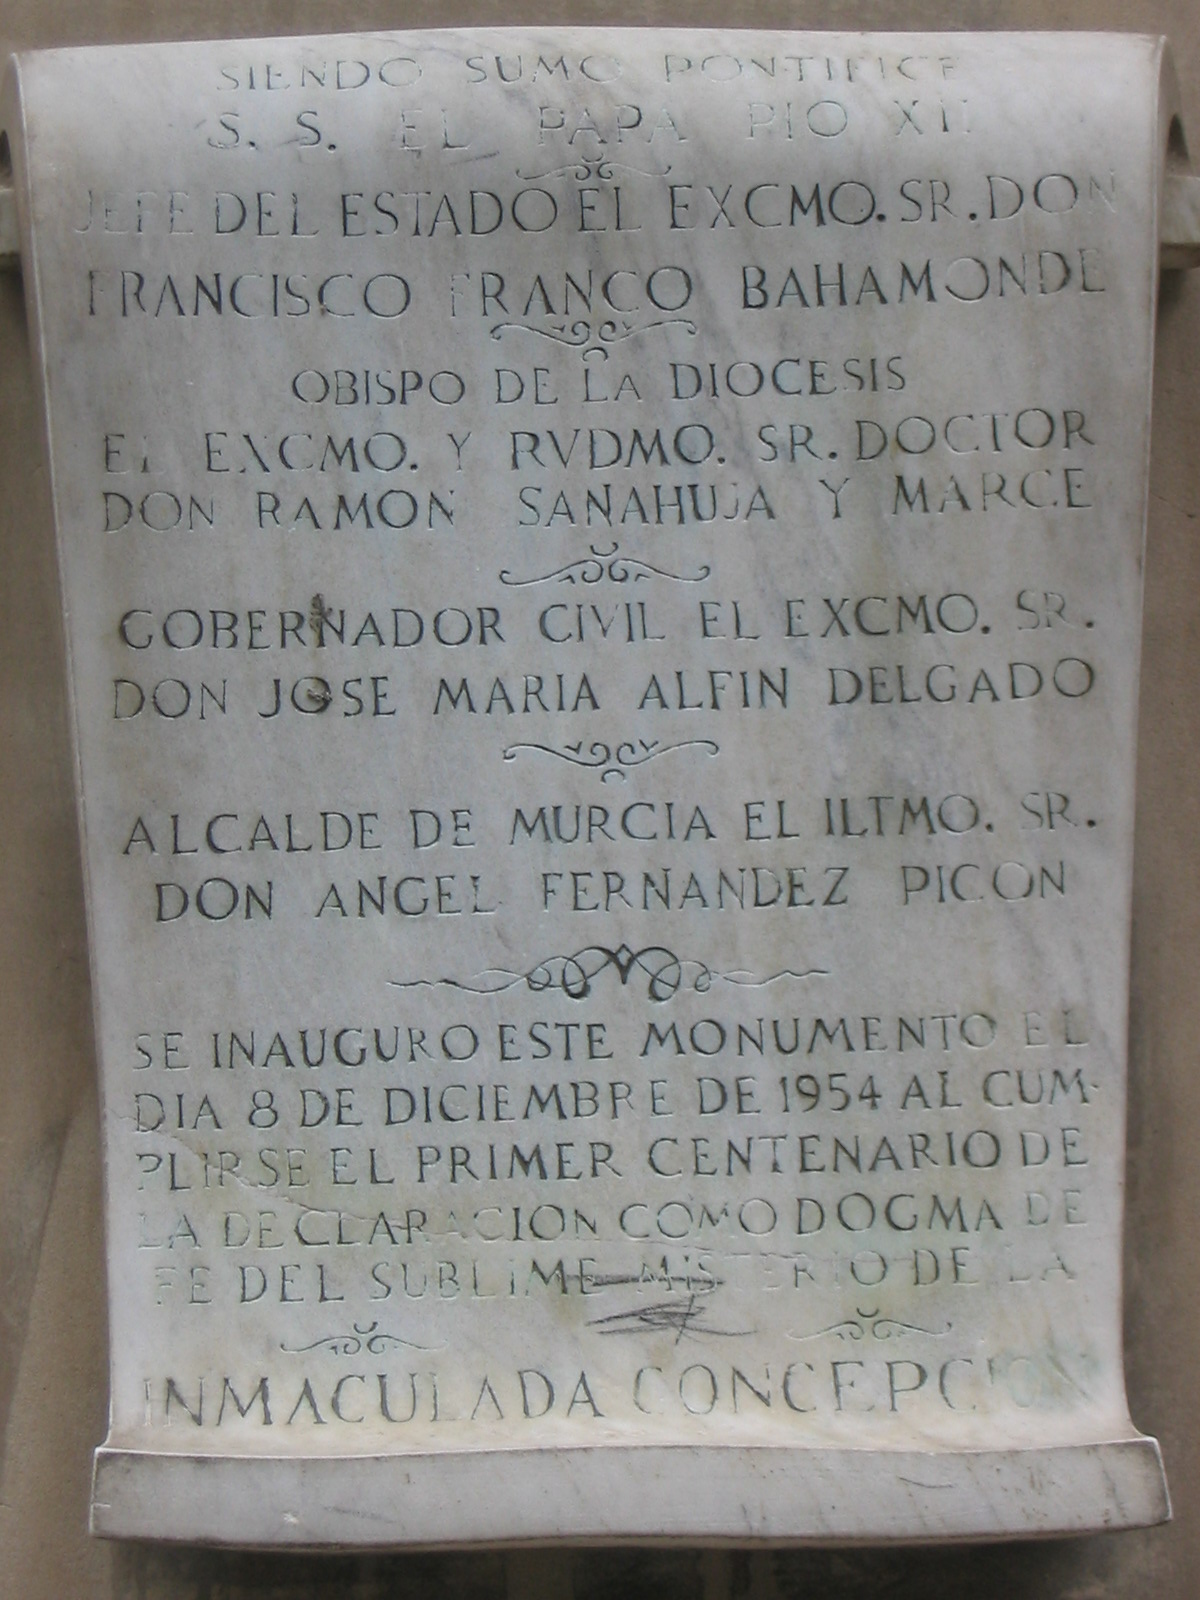 SIENDO SUMO PONTIFICE
S. S. EL PAPA PIO XII
JEFE DEL ESTADO EL EXCMO. SR. DON
FRANCISCO FRANCO BAHAMONDE
OBISPO DE LA DIOCESIS
EL EXCMO. Y RVDMO. SR. DOCTOR
DON RAMON SANAHUJA Y MARCE
GOBERNADOR CIVIL EL EXCMO. SR.
DON JOSE MARIA ALFIN DELGADO
ALCALDE DE MURCIA EL ILTMO. SR.
DON ANGEL FERNANDEZ PICON
SE INAUGURO ESTE MONUMENTO EL
DIA 8 DE DICIEMBRE DE 1954 AL CUM-
PLIRSE EL PRIMER CENTENARIO DE
LA DECLARACION COMO DOGMA DE
FE DEL SUBLIME MISTERIO DE LA
INMACULADA CONCEPCION